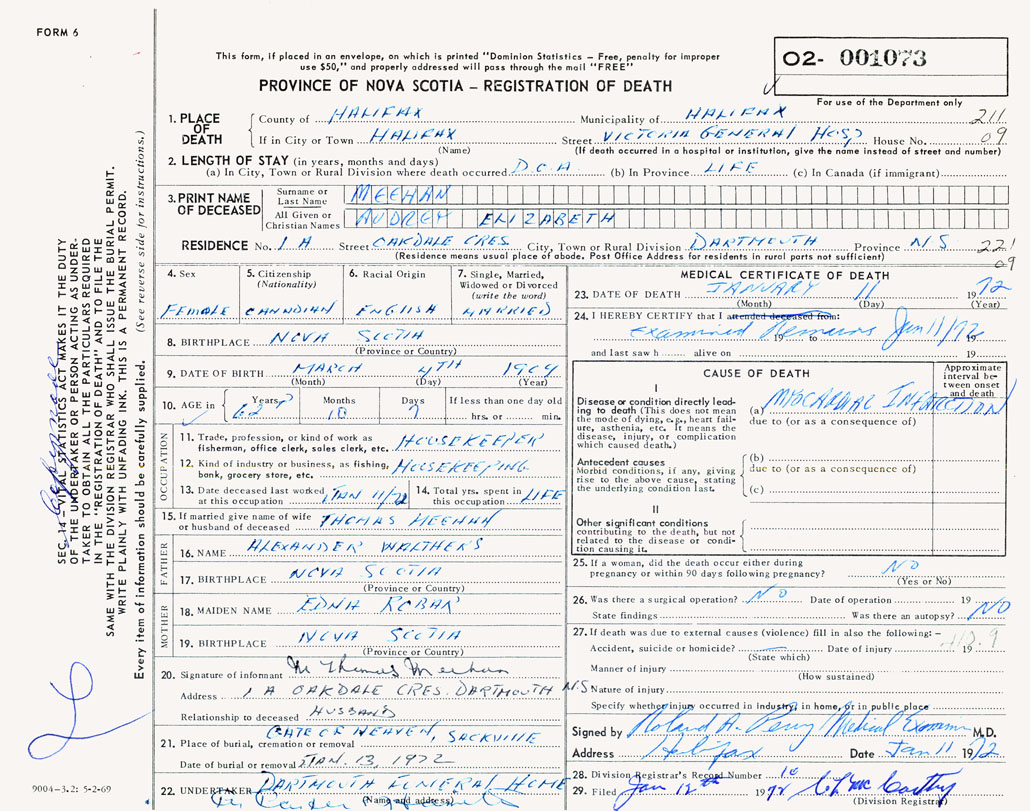 FORM 6
This form, if placed in an envelope, on which is printed "Dominion Statistics - Free, penalty for improper
use $50," and properly addressed will pass through the mail "FREE"
O2- 001073
PROVINCE OF NOVA SCOTIA — REGISTRATION OF DEATH
For use of the Department only
1. PLACE OF DEATH
County of HALIFAX Municipality of HALIFAX 211
If in City or Town HALIFAX Street VICTORIA GENERAL HOSP House No. 09
(Name) (If death occurred in a hospital or institution, give the name instead of street and number)
2. LENGTH OF STAY (in years, months and days)
(a) In City, Town or Rural Division where death occurred D.O.A (b) In Province LIFE (c) In Canada (if immigrant)
3. PRINT NAME OF DECEASED
Surname or Last Name MEEHAN
All Given or Christian Names AUDREY ELIZABETH
RESIDENCE No. 1A Street OAKDALE CRES. City, Town or Rural Division DARTMOUTH Province N S 221
(Residence means usual place of abode. Post Office Address for residents in rural parts not sufficient) 09
4. Sex FEMALE
5. Citizenship (Nationality) CANADIAN
6. Racial Origin ENGLISH
7. Single, Married, Widowed or Divorced (write the word) MARRIED
8. BIRTHPLACE NOVA SCOTIA
(Province or Country)
9. DATE OF BIRTH MARCH 4TH 1909
(Month) (Day) (Year)
10. AGE in Years 62 Months 10 Days 7 If less than one day old hrs. or min.
OCCUPATION
11. Trade, profession, or kind of work as fisherman, office clerk, sales clerk, etc. HOUSEKEEPER
12. Kind of industry or business, as fishing, bank, grocery store, etc. HOUSEKEEPING
13. Date deceased last worked at this occupation JAN 11/72
14. Total yrs. spent in this occupation LIFE
15. If married give name of wife or husband of deceased THOMAS MEEHAN
FATHER
16. NAME ALEXANDER WALTHERS
17. BIRTHPLACE NOVA SCOTIA
(Province or Country)
MOTHER
18. MAIDEN NAME EDNA ROBAR
19. BIRTHPLACE NOVA SCOTIA
(Province or Country)
20. Signature of informant M Thomas Meehan
Address 1 A OAKDALE CRES. DARTMOUTH N.S
Relationship to deceased HUSBAND
21. Place of burial, cremation or removal GATE OF HEAVEN, SACKVILLE
Date of burial or removal JAN. 13, 1972
22. UNDERTAKER DARTMOUTH FUNERAL HOME
(Name and address)
MEDICAL CERTIFICATE OF DEATH
23. DATE OF DEATH JANUARY 11 1972
(Month) (Day) (Year)
24. I HEREBY CERTIFY that I attended deceased from:
Examined Remains Jan 11/72
19 to 19
and last saw h alive on 19
CAUSE OF DEATH
Approximate interval between onset and death
I
Disease or condition directly leading to death (This does not mean the mode of dying, e.g., heart failure, asthenia, etc. It means the disease, injury, or complication which caused death.)
(a) MYOCARDIAL INFARCTION
due to (or as a consequence of)
Antecedent causes
Morbid conditions, if any, giving rise to the above cause, stating the underlying condition last.
(b)
due to (or as a consequence of)
(c)
II
Other significant conditions contributing to the death, but not related to the disease or condition causing it.
25. If a woman, did the death occur either during pregnancy or within 90 days following pregnancy? NO
(Yes or No)
26. Was there a surgical operation? NO Date of operation 19
State findings Was there an autopsy? NO
27. If death was due to external causes (violence) fill in also the following:—
Accident, suicide or homicide? Date of injury 19
(State which)
Manner of injury
(How sustained)
Nature of injury
Specify whether injury occurred in industry, in home, or in public place
Signed by Roland A. Perry Medical Examiner M.D.
Address Halifax Date Jan 11 1972
28. Division Registrar's Record Number 16
29. Filed Jan 12th 1972
(Division Registrar)
SEC. 14 — VITAL STATISTICS ACT MAKES IT THE DUTY
OF THE UNDERTAKER OR PERSON ACTING AS UNDER-
TAKER TO OBTAIN ALL THE PARTICULARS REQUIRED
IN THE "REGISTRATION OF DEATH" AND TO FILE THE
SAME WITH THE DIVISION REGISTRAR WHO SHALL ISSUE THE BURIAL PERMIT.
WRITE PLAINLY WITH UNFADING INK. THIS IS A PERMANENT RECORD.
Every item of information should be carefully supplied. (See reverse side for instructions.)
9004-3.2: 5-2-69